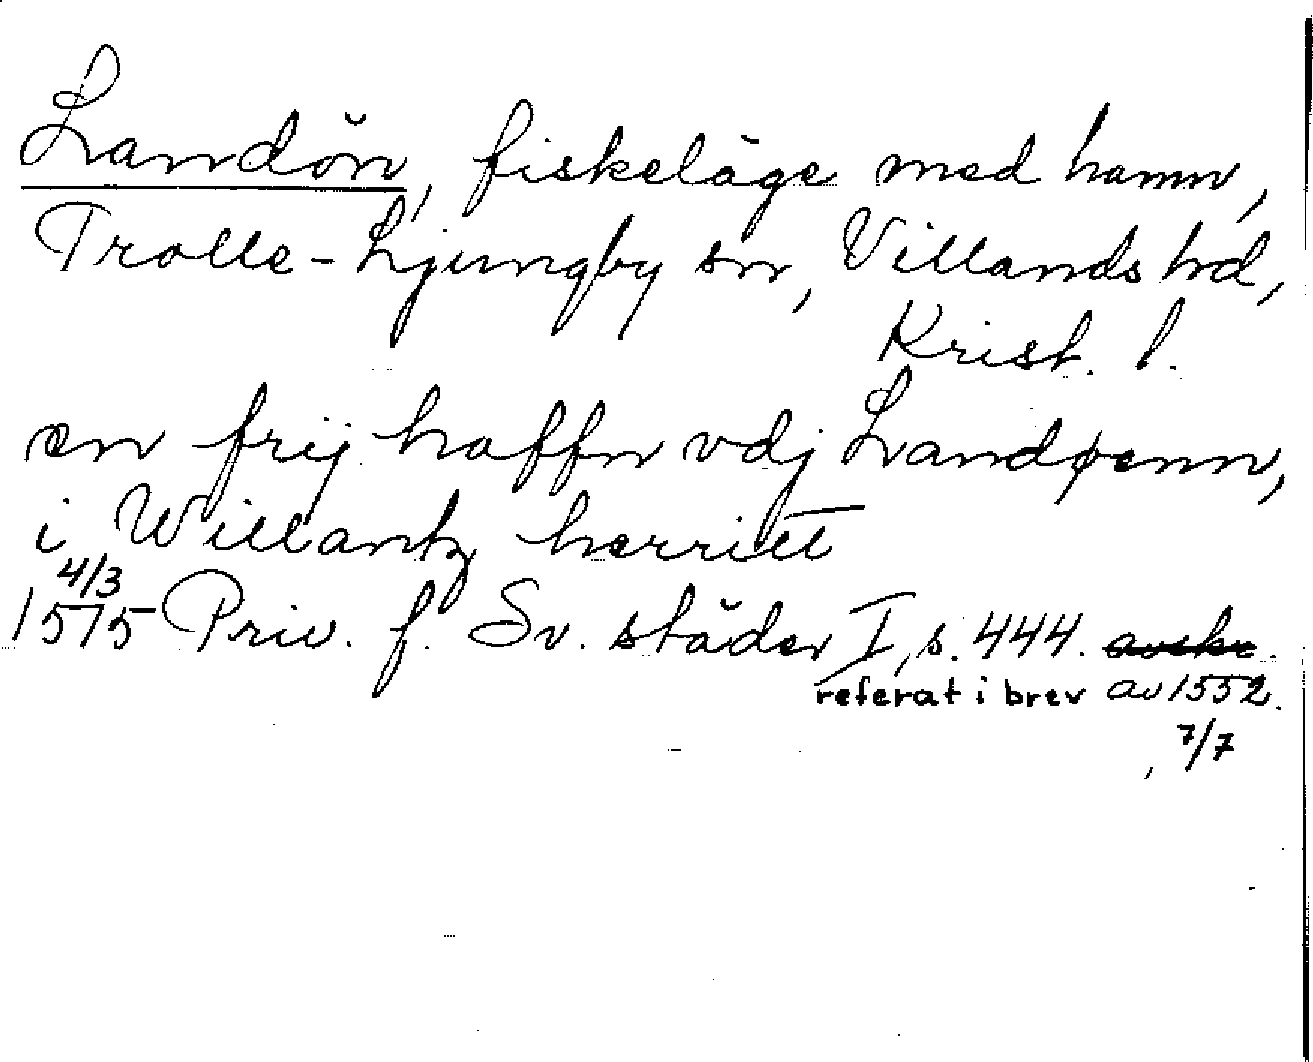 Landön, fiskeläge med hamn,
Trolle-Ljungby sn, Villands hd,
Krist. l.
en frij haffn vdj Landøenn,
i Willantz herritt
4/3
1575 Priv. f. Sv. städer I, s. 444. avskr.
referat i brev av 1552.
7/7